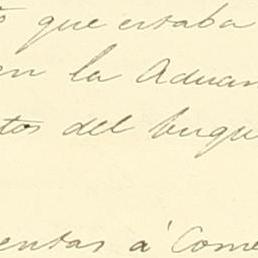 que estaba
en la Aduan
tos del buqu
entas á Come